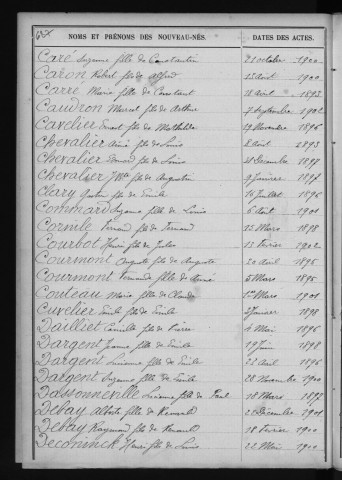 NOMS ET PRÉNOMS DES NOUVEAU-NÉS. DATES DES ACTES.
Caré Suzanne fille de Constantin 21 octobre 1900
Caron Robert fils de Alfred 25 août 1900
Carré Maria fille de Constant 18 Août 1893
Caudron Marcel fils de Arthur 7 Septembre 1902
Cavelier Ernest fils de Mathilde 29 Novembre 1896
Chevalier Aimé fils de Louis 8 Août 1893
Chevalier Edmond fils de Louis 31 Décembre 1897
Chevalier fils de Augustin 9 Janvier 1897
Clary Gaston fils de Emile 14 Juillet 1896
Commard Suzanne fille de Louis 6 Août 1901
Cornile Fernand fils de Fernand 25 Mars 1898
Courbot Henri fils de Jules 15 Février 1902
Courmont Auguste fils de Auguste 20 Avril 1895
Courmont Fernande fille de Aimé 5 Mars 1895
Couteau Maria fille de Claude 1er Mars 1901
Cuvelier Emile fils de Emile 2 Janvier 1898
Dailliet Camille fils de Pierre 4 Mai 1896
Dargent Jeanne fille de Emile 19 Juin 1898
Dargent Lucienne fille de Emile 22 Avril 1896
Dargent Suzanne fille de Emile 28 Novembre 1900
Dassonneville Lucienne fille de Paul 18 Mars 1893
Debay Alberte fille de Renault 22 Décembre 1901
Debay Raymond fils de Renault 18 Février 1900
Deconinck Henri fils de Louis 22 Mai 1900